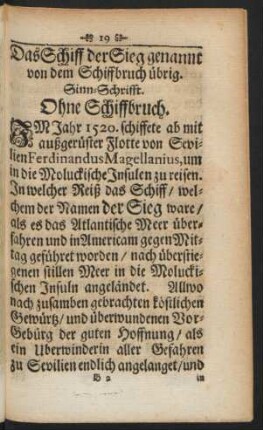 19
Das Schiff der Sieg genannt
von dem Schiffbruch übrig.
Sinn-Schrifft.
Ohne Schiffbruch.
IM Jahr 1520. schiffete ab mit
außgerüster Flotte von Sevi-
lien Ferdinandus Magellanius, um
in die Moluckische Insulen zu reisen.
In welcher Reiß das Schiff / wel-
chem der Namen der Sieg ware /
als es das Atlantische Meer über-
fahren und in Americam gegen Mit-
tag geführet worden / nach überstie-
genen stillen Meer in die Molucki-
schen Insuln angeländet. Allwo
nach zusamben gebrachten köstlichen
Gewürtz / und überwundenen Vor-
Gebürg der guten Hoffnung / als
ein Uberwinderin aller Gefahren
zu Sevilien endlich angelanget / und
B 2 in